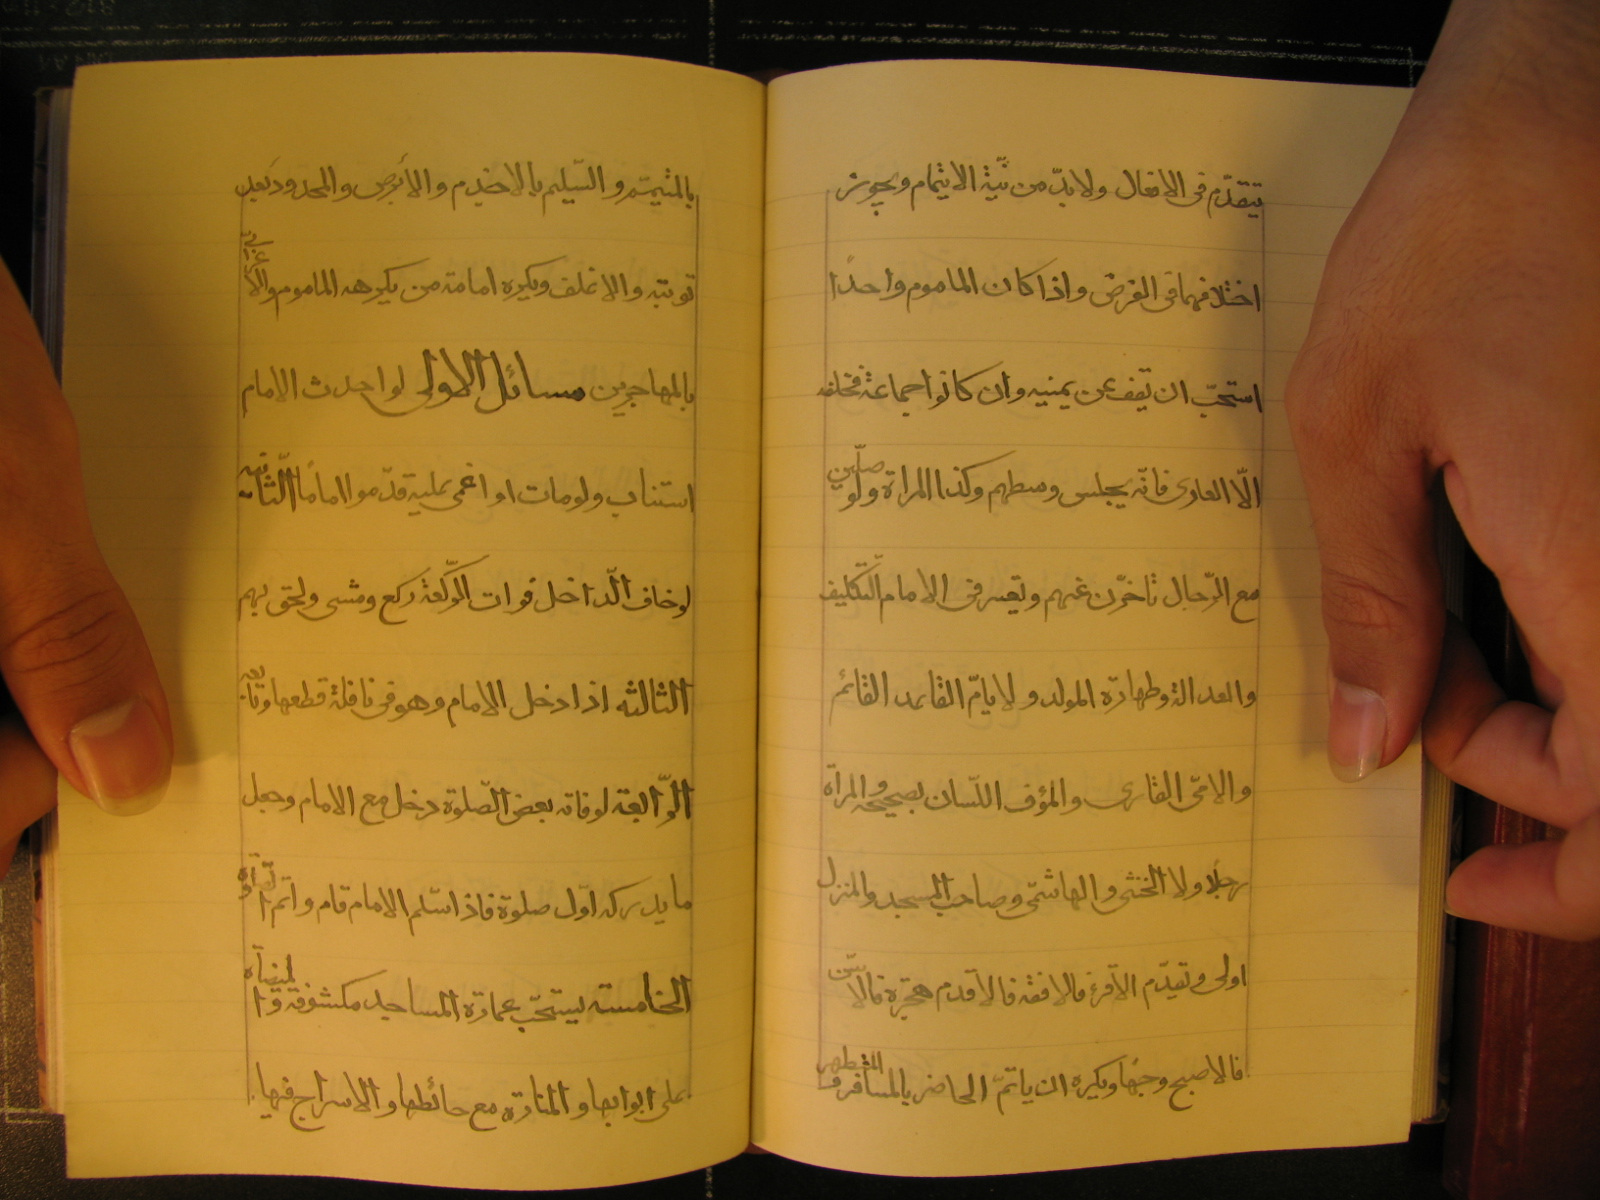 يتقدّم فى الافعال ولابدّ من نيّة الايتمام ويجوز
اختلافهما فى الفرض واذا كان الماموم واحدًا
استحبّ ان يقف عن يمنيه وان كانوا جماعة فخلفه
الّا العارى فانّه يجلس وسطهم وكذا المراة ولو صلّين
مع الرّجال تاخّرن عنهم ويعتبر فى الامام التّكليف
والعدالة وطهارة المولد ولا يامّ القاعد القائم
والامّى القارى والمؤف اللّسان بصحيحه والمراة
رجلًا ولا الخنثى والهاشمّى وصاحب المسجد والمنزل
اولى ويقدّم الاقرء فالافقه فالاقدم هجرة فالاسّن
فالاصبح وجهًا ويكره ان ياتمّ الحاضر بالمسافر والمتطهر
بالمتيمّم والسّليم بالاجذم والابرص والمحدود بعد
توبته والاغلف ويكره امامة من يكرهه الماموم والاعرابى
بالمهاجرين مسائل الاولى لو احدث الامام
استناب ولو مات او اغمى عليه قدّموا امامًا الثّانيه
لو خاف الّداخل فوات الرّكعة ركع ومشى ولحق بهم
الثالثه اذا دخل الامام وهو فى نافلة قطعها وتابعه
الرّابعة لو فاته بعض الصّلوة دخل مع الامام وجعل
ما يدركه اوّل صلوة فاذا سّلم الامام قام واتم الصّلوة
الخامسته يستحّب عمارة المساجد مكشوفه والميضاة
على ابوابها والمنارة مع حائطها والاسراج فيها